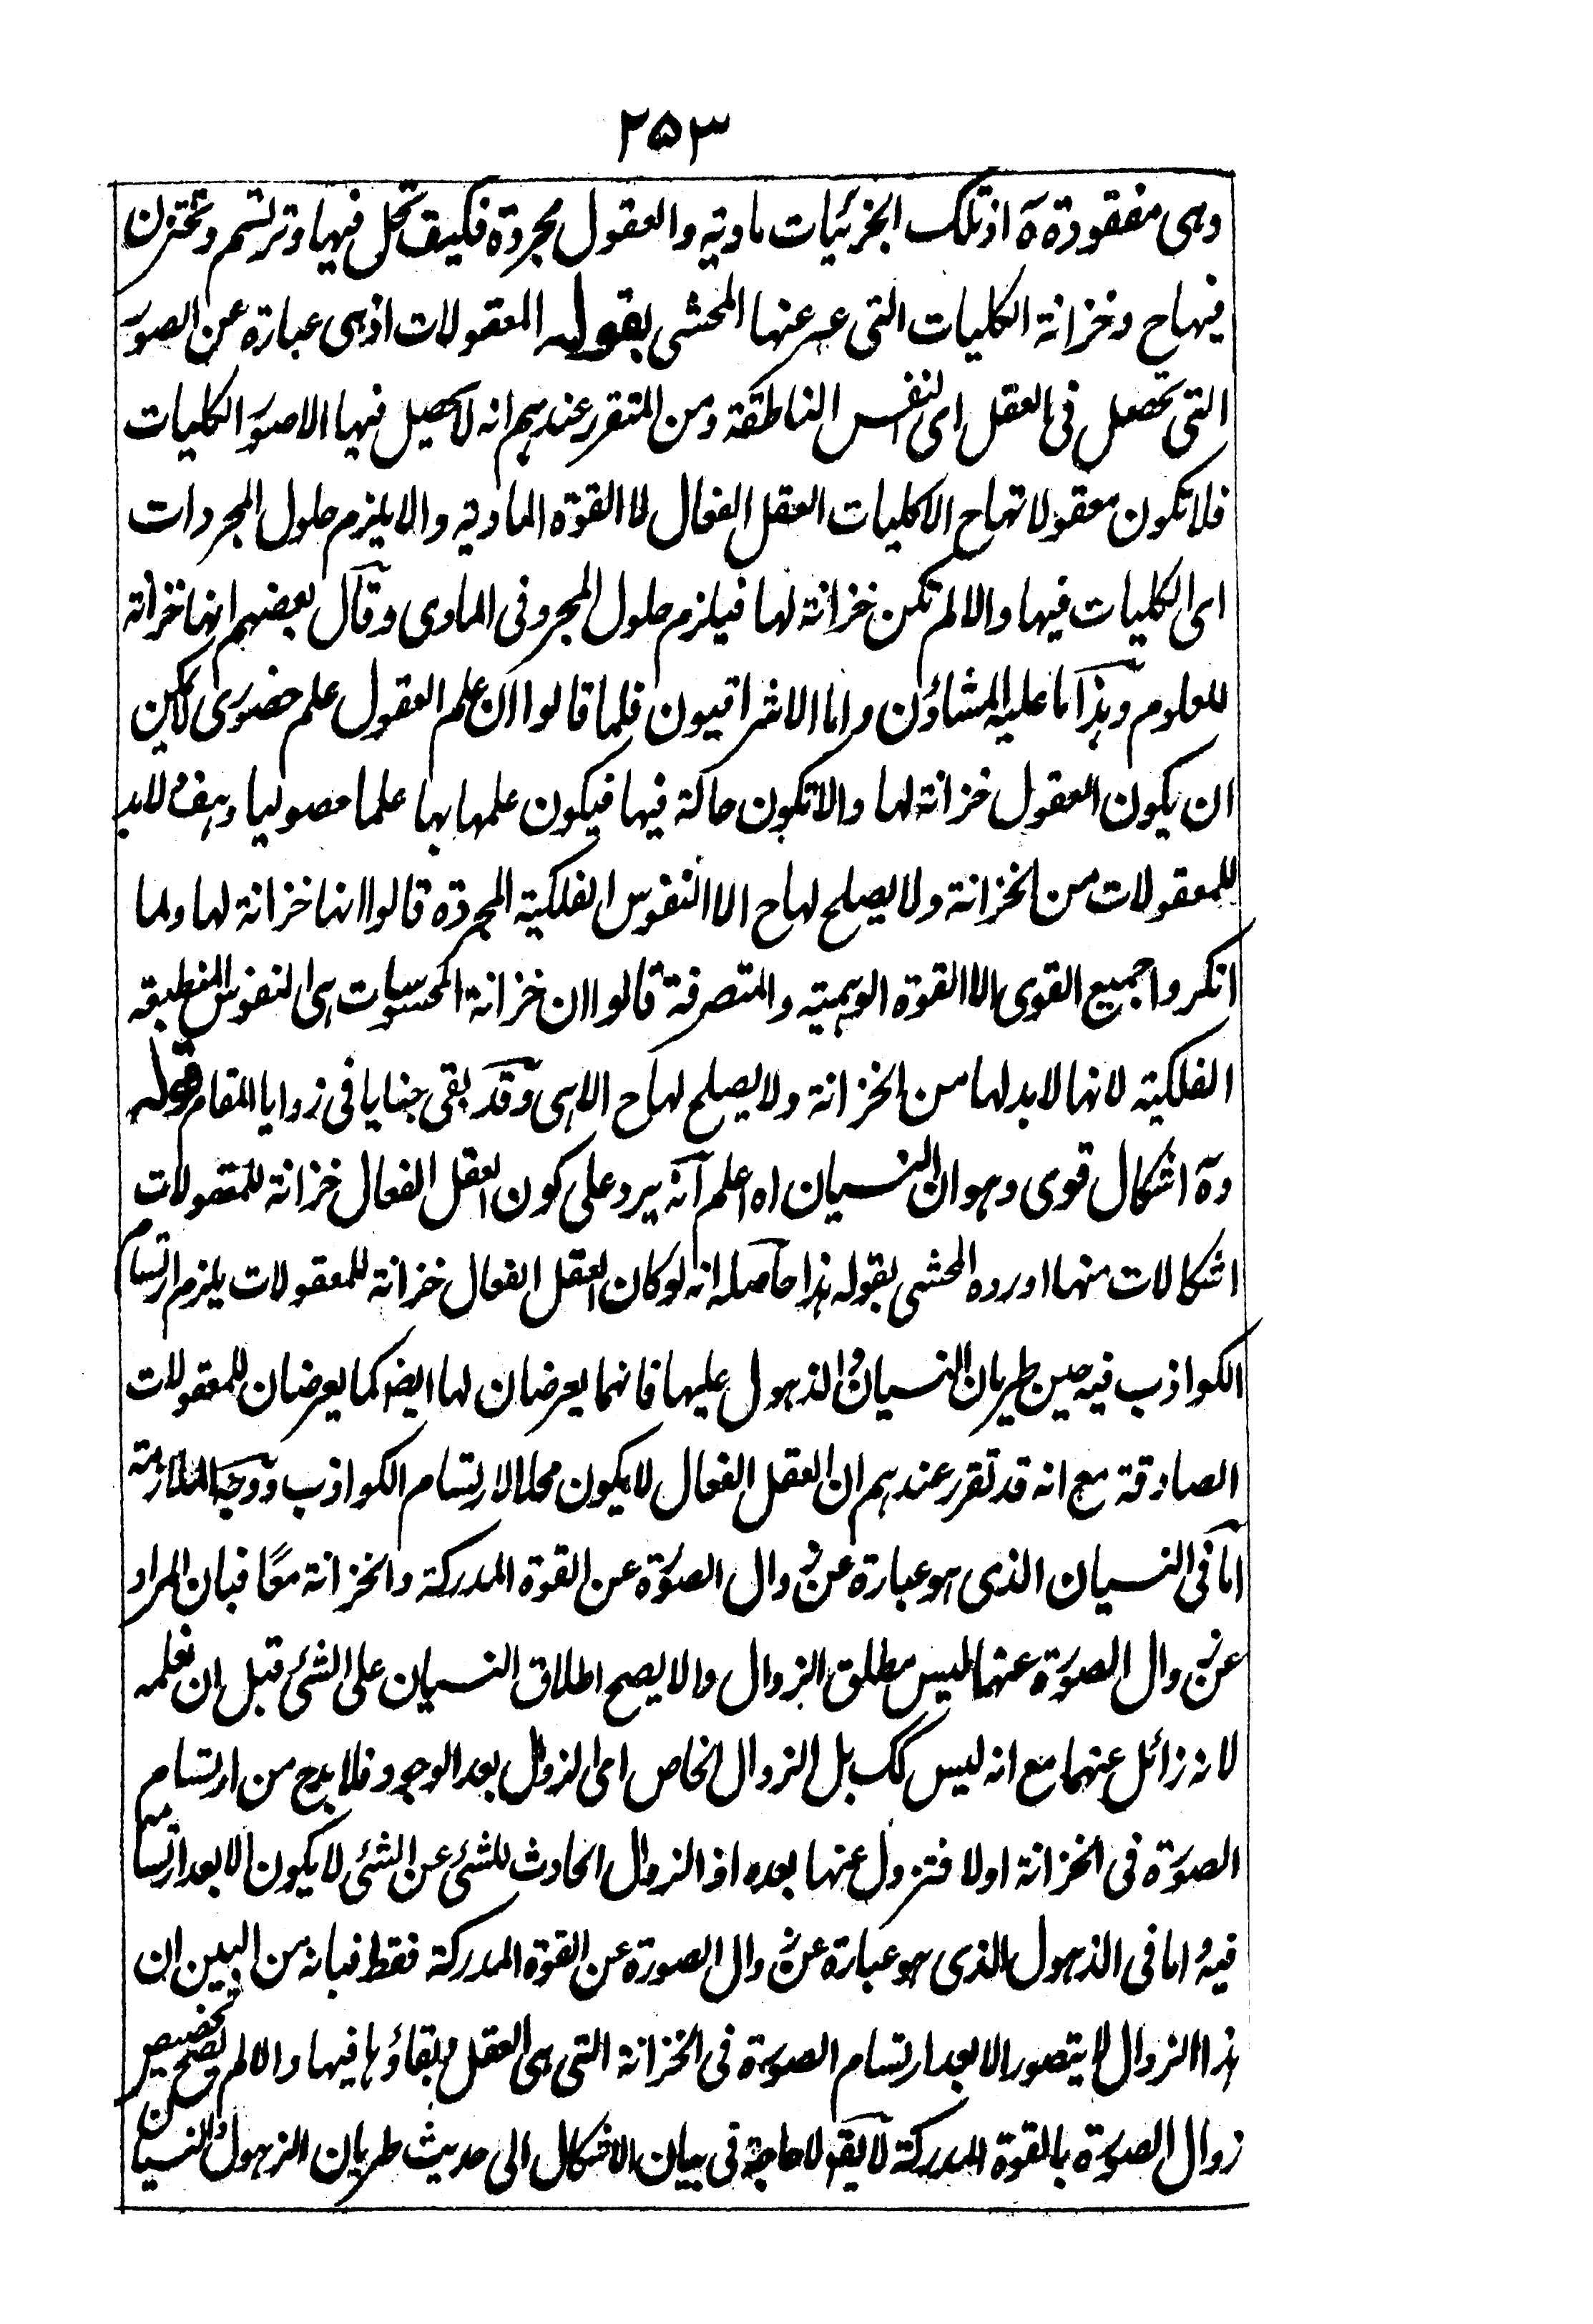 ٢٥٣
وهى مفقودة ة اذ تلك الجزئيات مادية والعقول مجردة فكيف تحل فيها وترتسم وتختزن
فيها ح وخزانة الكليات التى عبر عنها المحشى بقوله المعقولات اذ هى عبارة عن الصور
التى تحصل فى العقل اى النفس الناطقة ومن المتقرر عندهم انه لا يحصل فيها الا صور الكليات
فلا تكون معقولاتها ح الا كليات العقل الفعال لا القوة المادية والا يلزم حلول المجردات
اى الكليات فيها والا لم تكن خزانة لها فيلزم حلول المجرد فى المادى وقال بعضهم انها خزانة
للعلوم وهذا ما عليه المشاؤن واما الاشراقيون فلما قالوا ان علم العقول علم حضورى لا يمكن
ان يكون العقول خزانة لها والا تكون حالة فيها فيكون علمها بها علما حصوليا وهف لابد
للمعقولات من الخزانة ولا يصلح لها ح الا النفوس الفلكية المجردة قالوا انها خزانة لها ولما
انكروا جميع القوى الا القوة الوهمية والمتصرفة قالوا ان خزانة المحسوسات هى النفوس المنطبعة
الفلكية لانها لا بد لها من الخزانة ولا يصلح لها ح الا هى وقد بقى خبايا فى زوايا المقام قوله
وة اشكال قوى وهو ان النسيان اه اعلم انه يرد على كون العقل الفعال خزانة للمعقولات
اشكالات منها اورده المحشى بقوله هذا حاصله انه لو كان العقل الفعال خزانة للمعقولات يلزم ارتسام
الكواذب فيه حين طريان النسيان والذهول عليها فانهما يعرضان لها ايضا كما يعرضان للمعقولات
الصادقة مع انه قد تقرر عندهم ان العقل الفعال لا يكون محلا لارتسام الكواذب ووجه الملازمة
اما فى النسيان الذى هو عبارة عن زوال الصورة عن القوة المدركة والخزانة معا فبان المراد
عن زوال الصورة عنهما ليس مطلق الزوال والا يصح اطلاق النسيان على الشئ قبل ان نعلمه
لانه زائل عنهما مع انه ليس كك بل الزوال الخاص اى الزوال بعد الوجود فلا بد ح من ارتسام
الصورة فى الخزانة اولا فتزول عنها بعده اذ الزوال الحادث للشئ عن الشئ لا يكون الا بعد ارتسامه
فيه و اما فى الذهول الذى هو عبارة عن زوال الصورة عن القوة المدركة فقط فبانه من البين ان
هذا الزوال لا يتصور الا بعد ارتسام الصورة فى الخزانة التى هى العقل وبقاؤها فيها والا لم يصح تخصيص
زوال الصورة بالقوة المدركة لا يقه لا حاجة فى بيان الاشكال الى حديث طريان الذهول والنسيان